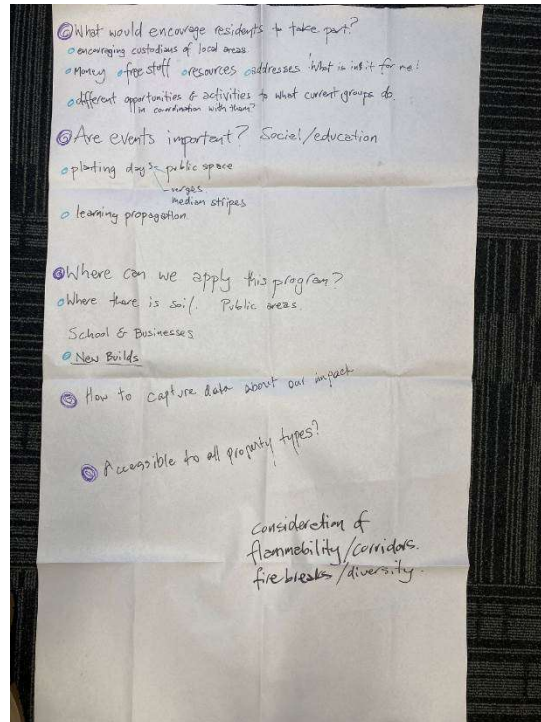 What would encourage residents to take part?
encouraging custodians of local areas.
Money free stuff resources addresses 'What is in it for me!'
different opportunities & activities to what current groups do.
in coordination with them?
Are events important? Social/education
planting days - public space
- verges
median stripes
learning propagation
Where can we apply this program?
Where there is soil. Public areas.
School & Businesses
New Builds
How to capture data about our impact
Accessible to all property types?
Consideration of
flammability/corridors.
fire breaks/diversity.